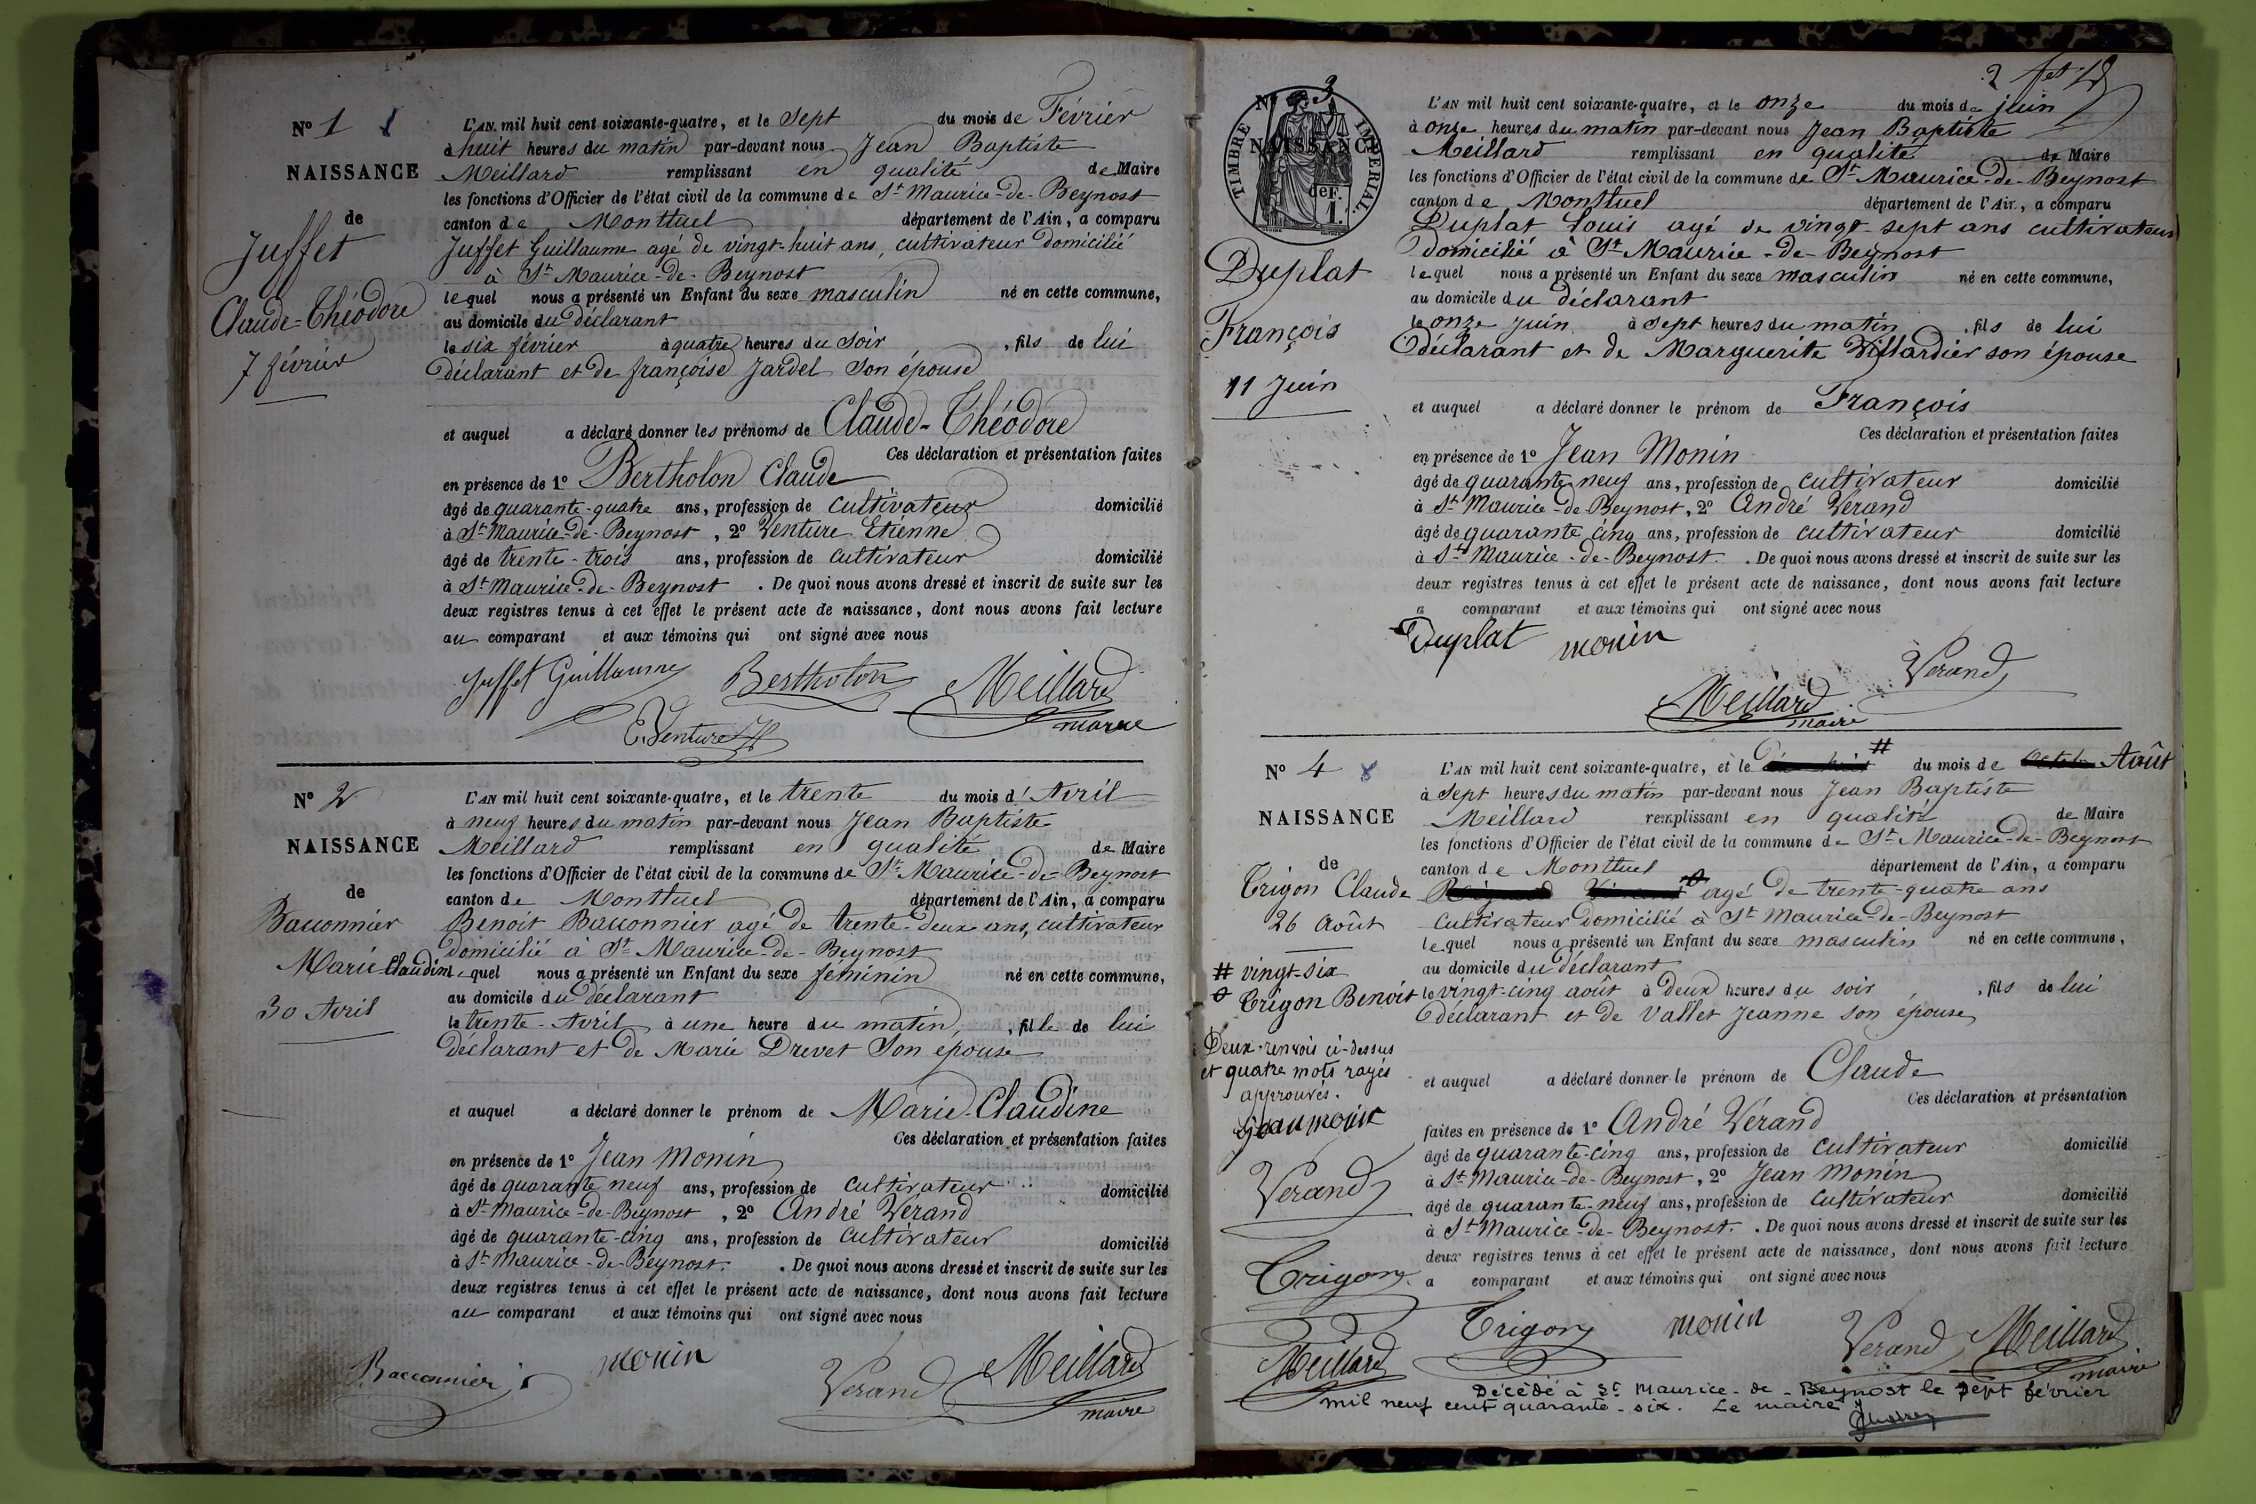 N° 1
NAISSANCE
de
Juffet
Claude-Théodore
7 février
L'AN mil huit cent soixante-quatre, et le sept du mois de Février
à huit heures du matin par-devant nous Jean Baptiste
Meillard remplissant en qualité de Maire
les fonctions d'Officier de l'état civil de la commune de St Maurice-de-Beynost
canton de Montluel département de l'Ain, a comparu
Juffet Guillaume agé de vingt-huit ans, cultivateur domicilié
à St Maurice-de-Beynost
lequel nous a présenté un Enfant du sexe masculin né en cette commune,
au domicile du déclarant
le six février à quatre heures du soir, fils de lui
déclarant et de françoise Jardel son épouse
et auquel a déclaré donner les prénoms de Claude-Théodore
Ces déclaration et présentation faites
en présence de 1° Bertholon Claude
âgé de quarante-quatre ans, profession de cultivateur domicilié
à St Maurice-de-Beynost, 2° Venture Etienne
âgé de trente-trois ans, profession de cultivateur domicilié
à St Maurice-de-Beynost. De quoi nous avons dressé et inscrit de suite sur les
deux registres tenus à cet effet le présent acte de naissance, dont nous avons fait lecture
au comparant et aux témoins qui ont signé avec nous
Juffet Guillaume Bertholon Meillard
E. Venture maire
N° 2
NAISSANCE
de
Bacconnier
Marie Claudine
30 Avril
L'AN mil huit cent soixante-quatre, et le trente du mois d'Avril
à neuf heures du matin par-devant nous Jean Baptiste
Meillard remplissant en qualité de Maire
les fonctions d'Officier de l'état civil de la commune de St Maurice-de-Beynost
canton de Montluel département de l'Ain, a comparu
Benoit Bacconnier agé de trente-deux ans, cultivateur
domicilié à St Maurice-de-Beynost
lequel nous a présenté un Enfant du sexe féminin né en cette commune,
au domicile du déclarant
le trente-Avril à une heure du matin, fille de lui
déclarant et de Marie Drevet son épouse
et auquel a déclaré donner le prénom de Marie-Claudine
Ces déclaration et présentation faites
en présence de 1° Jean Monin
âgé de quarante neuf ans, profession de cultivateur domicilié
à St Maurice-de-Beynost, 2° André Vérand
âgé de quarante-cinq ans, profession de cultivateur domicilié
à St Maurice-de-Beynost. De quoi nous avons dressé et inscrit de suite sur les
deux registres tenus à cet effet le présent acte de naissance, dont nous avons fait lecture
au comparant et aux témoins qui ont signé avec nous
Bacconnier monin Verand Meillard
maire
2
N° 3
NAISSANCE
TIMBRE IMPERIAL
1 F.
de
Duplat
François
11 Juin
L'AN mil huit cent soixante-quatre, et le onze du mois de juin
à onze heures du matin par-devant nous Jean Baptiste
Meillard remplissant en qualité de Maire
les fonctions d'Officier de l'état civil de la commune de St Maurice-de-Beynost
canton de Montluel département de l'Ain, a comparu
Duplat Louis agé de vingt-sept ans cultivateur
domicilié à St Maurice-de-Beynost
lequel nous a présenté un Enfant du sexe masculin né en cette commune,
au domicile du déclarant
le onze Juin à sept heures du matin, fils de lui
déclarant et de Marguerite Villardier son épouse
et auquel a déclaré donner le prénom de François
Ces déclaration et présentation faites
en présence de 1° Jean Monin
âgé de quarante neuf ans, profession de cultivateur domicilié
à St Maurice-de-Beynost, 2° André Verand
âgé de quarante cinq ans, profession de cultivateur domicilié
à St Maurice-de-Beynost. De quoi nous avons dressé et inscrit de suite sur les
deux registres tenus à cet effet le présent acte de naissance, dont nous avons fait lecture
a comparant et aux témoins qui ont signé avec nous
Duplat monin Verand
Meillard
maire
N° 4
NAISSANCE
de
Trigon Claude
26 Août
# vingt-six
Trigon Benoît
Deux renvois ci-dessus
et quatre mots rayés
approuvés.
Jean monin
Verand
Trigon
Meillard
L'AN mil huit cent soixante-quatre, et le # du mois de Août
à sept heures du matin par-devant nous Jean Baptiste
Meillard remplissant en qualité de Maire
les fonctions d'Officier de l'état civil de la commune de St Maurice-de-Beynost
canton de Montluel département de l'Ain, a comparu
agé de trente-quatre ans
cultivateur domicilié à St Maurice-de-Beynost
lequel nous a présenté un Enfant du sexe masculin né en cette commune,
au domicile du déclarant
le vingt-cinq août à deux heures du soir, fils de lui
déclarant et de Vallet Jeanne son épouse
et auquel a déclaré donner le prénom de Claude
Ces déclaration et présentation
faites en présence de 1° André Vérand
âgé de quarante-cinq ans, profession de cultivateur domicilié
à St Maurice-de-Beynost, 2° Jean Monin
âgé de quarante-neuf ans, profession de cultivateur domicilié
à St Maurice-de-Beynost. De quoi nous avons dressé et inscrit de suite sur les
deux registres tenus à cet effet le présent acte de naissance, dont nous avons fait lecture
a comparant et aux témoins qui ont signé avec nous
Trigon monin Verand Meillard
maire
Décédé à St Maurice-de-Beynost le sept février
mil neuf cent quarante-six. Le maire